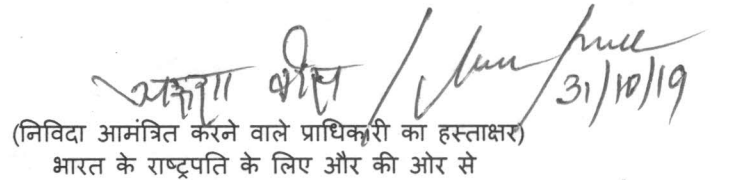 31/10/19
(निविदा आमंत्रित करने वाले प्राधिकारी का हस्ताक्षर)
भारत के राष्ट्रपति के लिए और की ओर से